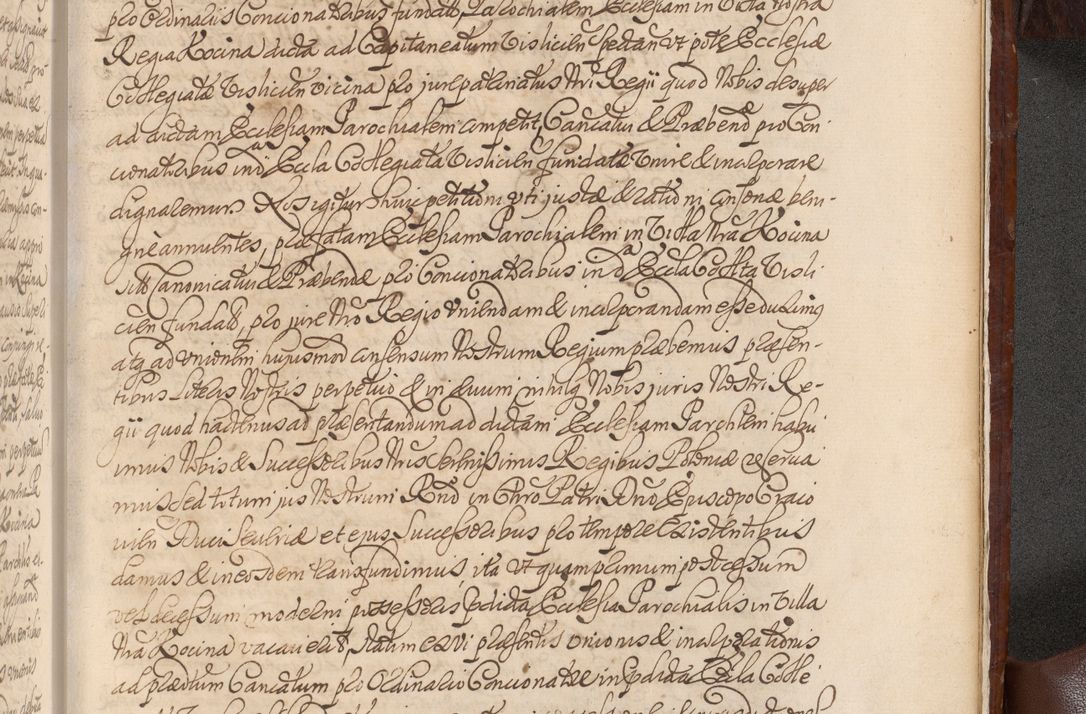 pro Ordinariis Concionatoribus fundatt, Parochialem Ecclesiam in Villa Nostra
Regia Kocina dicta ad Capitaneatum Visliciensem spectan ut pote Ecclesiæ
Collegiatæ Vislicien vicina pro jure patronatus Nri Regii quod Nobis desuper
ad dictam Ecclesiam Parochialem competit, Cancatui & Præbendæ pro Con-
cionatoribus in dta Eccla Collegiata Vislicien fundatæ Vnire & incorporare
dignaremur. Nos igitur huic petitioni uti justæ & rationi consonæ beni-
gne annuentes, præfatam Ecclesiam Parochialem in Villa Nra Kocina
sitt Canonicatui & Præbendæ pro Concionatoribus in da Eccla Collta Visli-
cien fundatt, pro jure Nro Regio Vniendam & incorporandam esse duximus
atq ad Vnionem hujusmod consensum Nostrum Regium præbemus præsen-
tibus Literis Nostris perpetuo & in ævum nihilq Nobis juris Nostri Re-
gii quod hactenus ad præsentandum ad dictam Ecclesiam Parchlem habu
imus Nobis & Successoribus Nris Serenissimis Regibus Poloniæ reserva
mus sed totum jus Nostrum Rndo in Chro Patri Dno Episcopo Craco
vien Duci Severiæ et ejus Successoribus pro tempore Existentibus
damus & in eosdem transfundimus ita ut quamprimum post cessum
vel decessum moderni possessoris pdicta Ecclesia Parochialis in Villa
Nra Kocina vacaverit, statim ex vi præsentis Vnionis & incorporationis
ad prædtum Cancatum pro Ordinario Concionatore in pdicta Eccla Colle